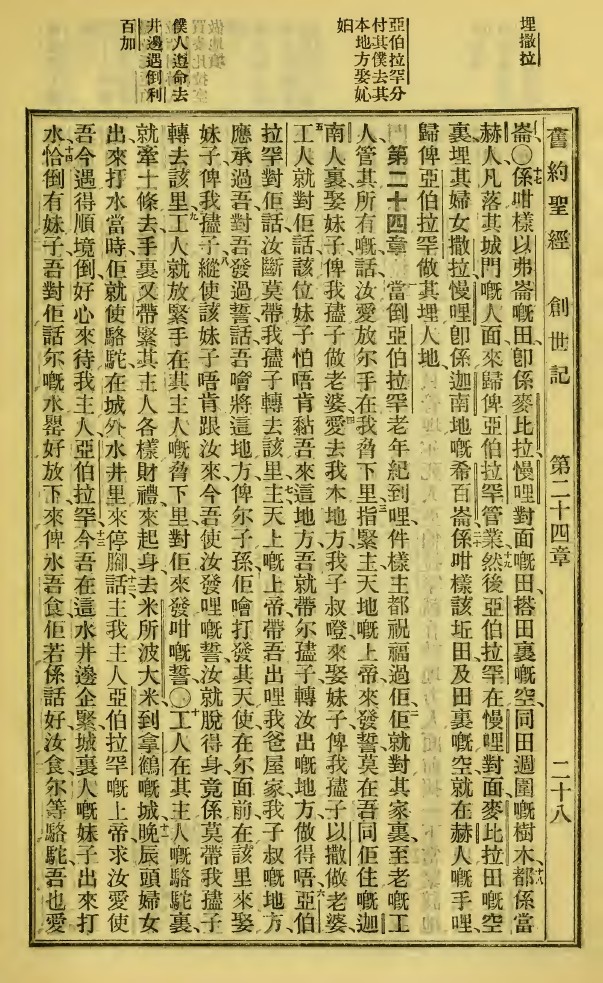 埋撒拉
亞伯拉罕分
付其僕去其
本地方娶妃
妇
僕人遵命去
井邊遇倒利
百加
舊約聖經 創世記 第二十四章 二十八
崙、〇十七係咁樣以弗崙嘅田、卽係麥比拉慢哩對面嘅田、搭田裏嘅空、同田週圍嘅樹木、都十八係當
赫人凡落其城門嘅人面來歸俾亞伯拉罕管業、十九然後亞伯拉罕在慢哩對面麥比拉田嘅空
裏埋其婦女撒拉、慢哩卽係迦南地嘅希百崙、二十係咁樣該坵田及田裏嘅空、就在赫人嘅手哩、
歸俾亞伯拉罕做其埋人地、
第二十四章 一當倒亞伯拉罕老年紀到哩、件樣主都祝福過佢、二佢就對其家裏至老嘅工
人管其所有嘅話、汝愛放尔手在我脅下里、三指緊主天地嘅上帝來發誓、莫在吾同佢住嘅迦
南人裏娶妹子俾我孻子做老婆、四愛去我本地方我子叔噔來娶妹子俾我孻子以撒做老婆、
五工人就對佢話、該位妹子怕唔肯黏吾來這地方、吾就帶尔孻子轉汝出嘅地方、做得唔、六亞伯
拉罕對佢話、汝斷莫帶我孻子轉去該里、七主天上嘅上帝、帶吾出哩我爸屋家、我子叔嘅地方、
應承過吾、對吾發過誓話、吾噲將這地方俾尔子孫、佢噲打發其天使在尔面前、在該里來娶
妹子俾我孻子、八縱使該妹子唔肯跟汝來、今吾使汝發哩嘅誓、汝就脫得身、竟係莫帶我孻子
轉去該里、九工人就放緊手在其主人嘅脅下里、對佢來發咁嘅誓、〇十工人在其主人嘅駱駝裏、
就牽十條去、手裏又帶緊其主人各樣財禮來起身、去米所波大米、到拿鶴嘅城、十一晚辰頭婦女
出來打水當時、佢就使駱駝在城外水井里來停腳、十二話、主我主人亞伯拉罕嘅上帝、求汝愛使
吾今遇得順境、倒好心來待我主人亞伯拉罕、十三今吾在這水井邊企緊、城裏人嘅妹子出來打
水、十四恰倒有妹子吾對佢話、尔嘅水罌好放下來俾水吾食、佢若係話、好、汝食、尔等駱駝吾也愛